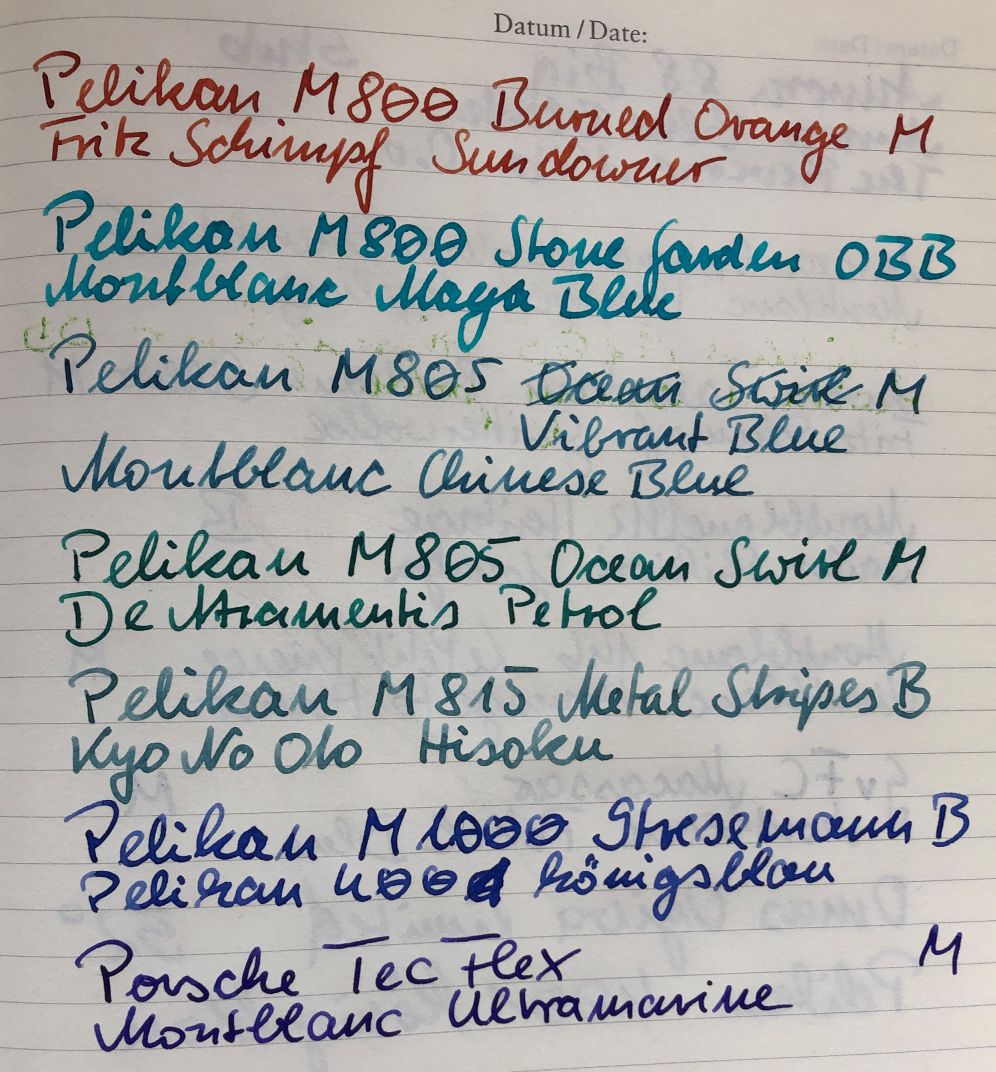 Datum / Date:
Pelikan M800 Burned Orange M
Fritz Schimpf Sundowner
Pelikan M800 Stone Garden OBB
Montblanc Maya Blue
Pelikan M805 Ocean Swirl M
Vibrant Blue
Montblanc Chinese Blue
Pelikan M805 Ocean Swirl M
De Atramentis Petrol
Pelikan M815 Metal Stripes B
Kyo No Oto Hisoku
Pelikan M1000 Stresemann B
Pelikan 4001 königsblau
Porsche Tec Flex M
Montblanc Ultramarine